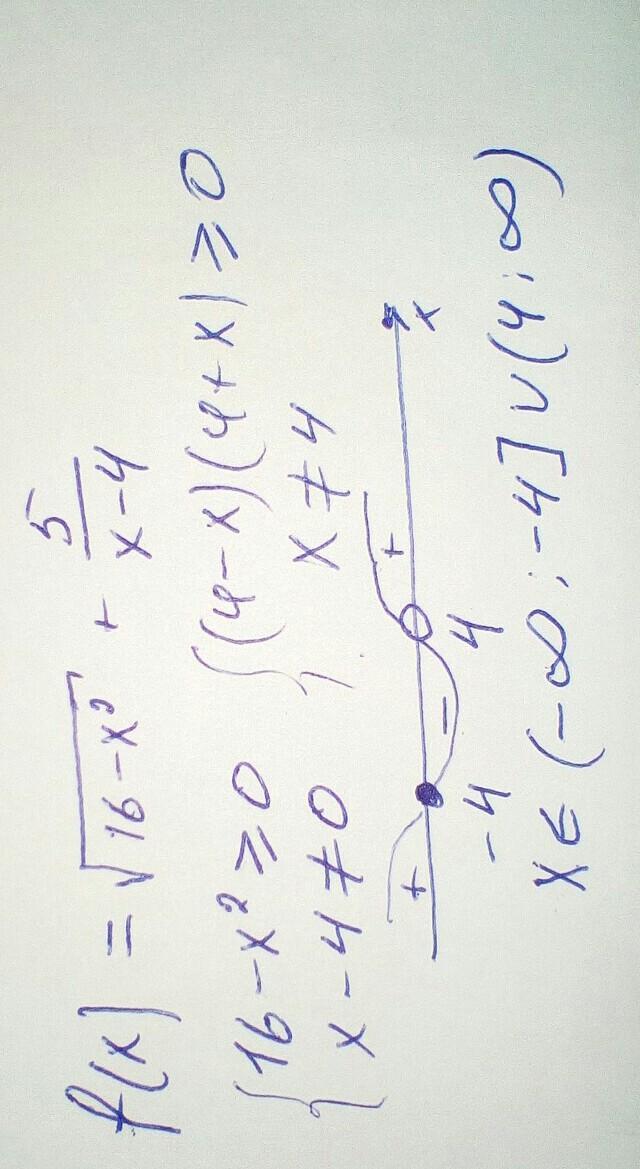 f(x) = √(16-x²) + 5/(x-4)
{16-x² ≥ 0 {(4-x)(4+x) ≥ 0
{x-4 ≠ 0 { x ≠ 4
+ - + x
-4 4
x ∈ (-∞; -4] ∪ (4; ∞)